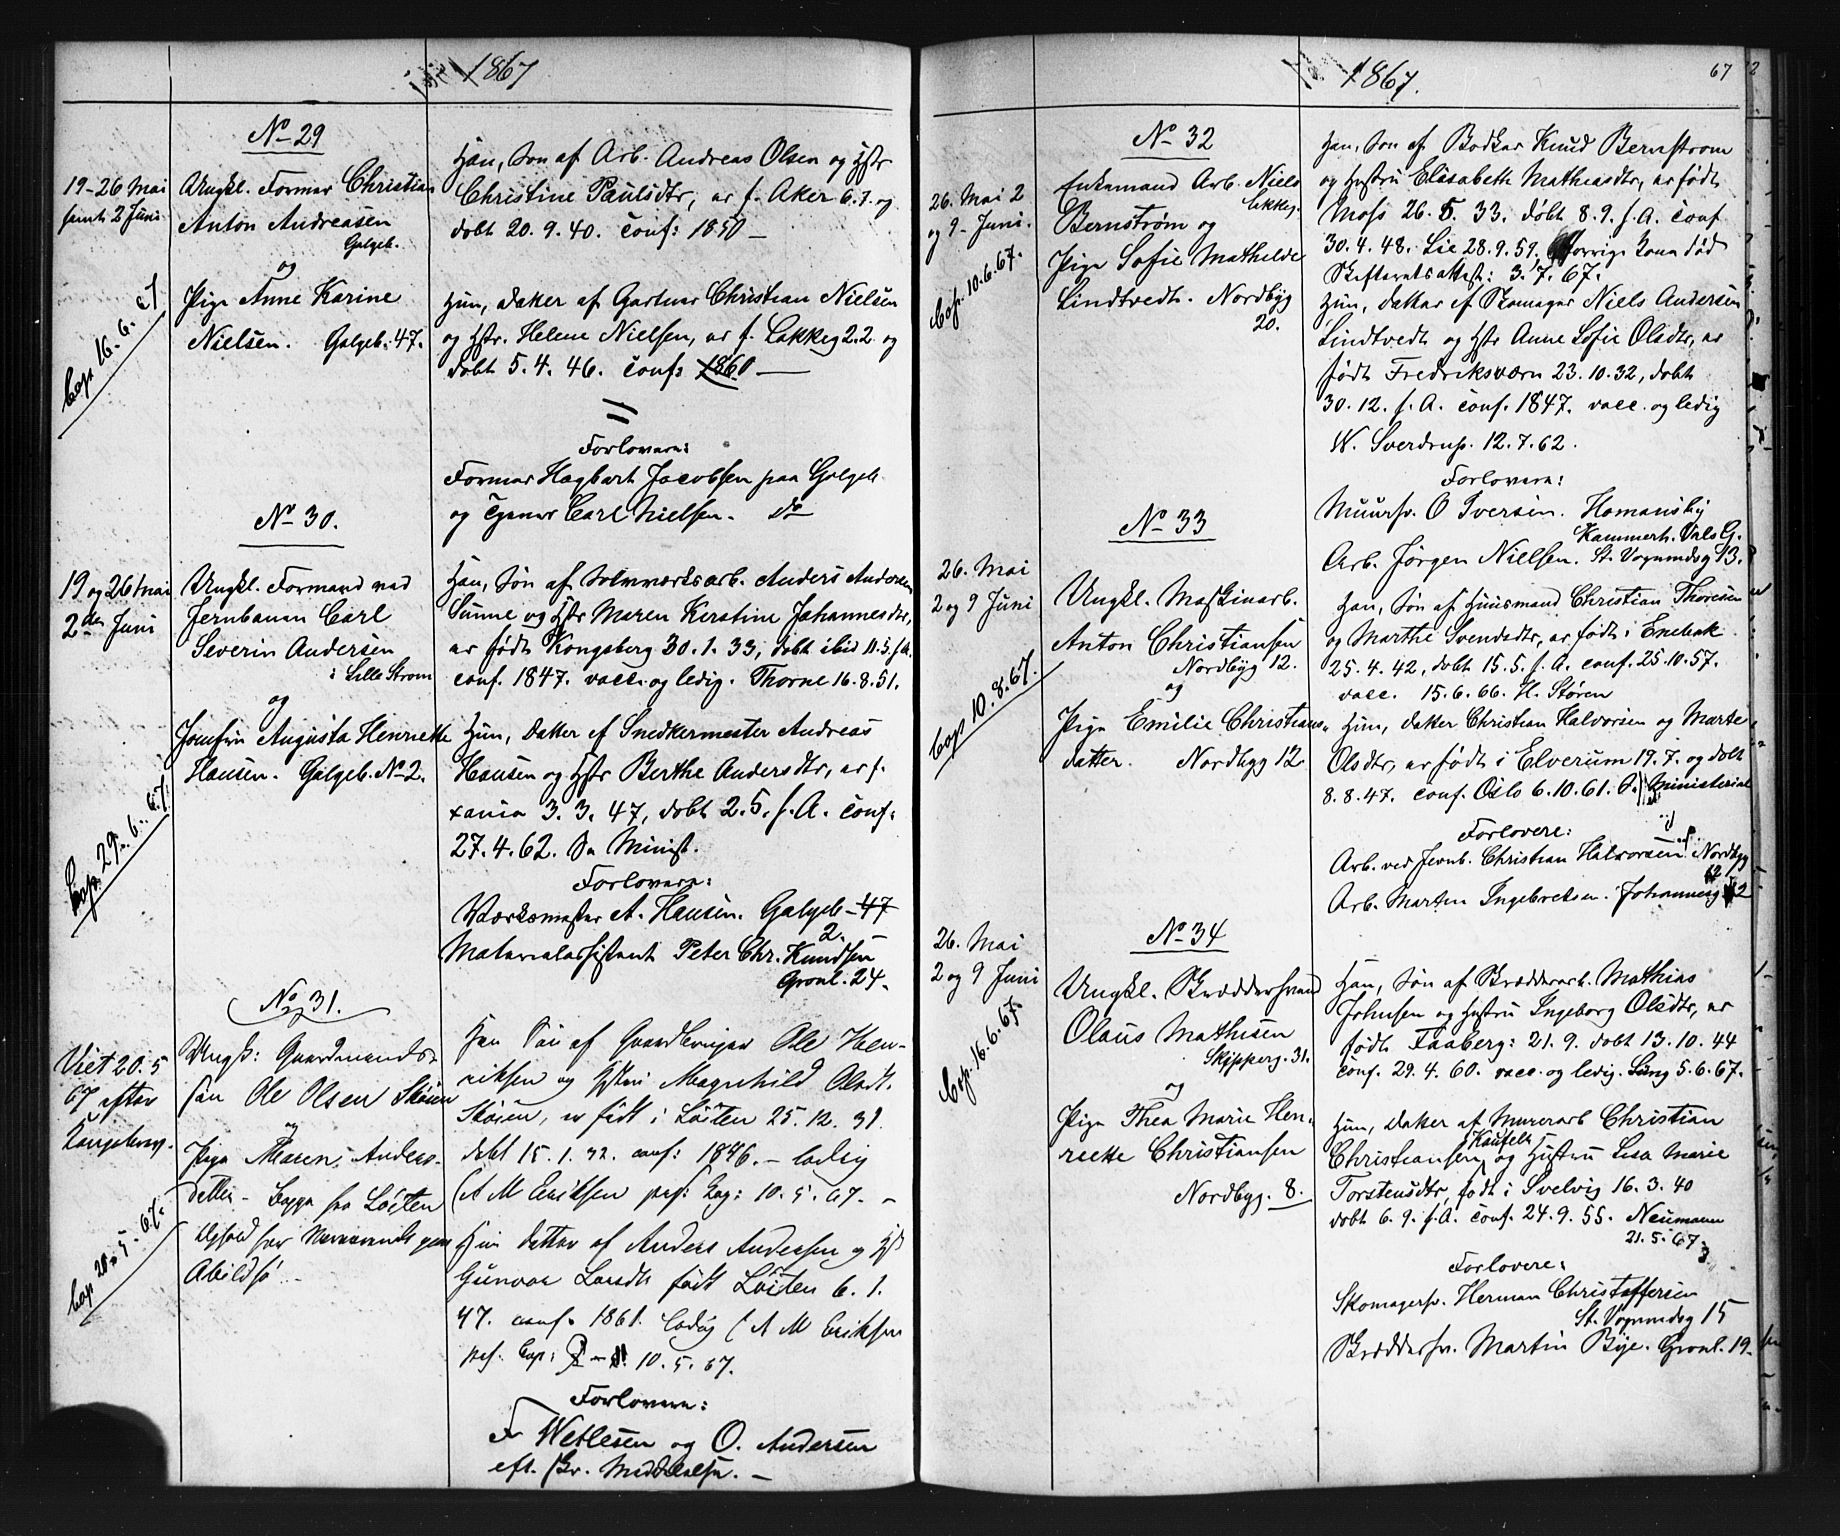 1867
No 29
19-26 Mai
samt 2 Juni
Ungkl. Former Christian
Anton Andreasen
Galgeb.
og
Pige Anne Karine
Nielsen. Galgeb. 47.
Cop. 16. 6. 67
Han, Søn af Arb. Andreas Olsen og Hstr
Christine Paulsdtr, er f. Aker 6.7. og
døbt 20. 9. 40. Conf: 1850 —
Hun, Datter af Gartner Christian Nielsen
og Hstr. Helene Nielsen, er f. Lakkeg 2.2 og
døbt 5. 4. 46. Conf: 1860 —
Forlovere:
Former Hagbart Jacobsen paa Galgeb
og Carl Nielsen. do
No 30.
19 og 26 Mai
2den Juni
Ungkl. Formand ved
Jernbanen Carl
Severin Andersen
i Lille Strøm
og
Jomfru Augusta Henriette
Hansen. Galgeb. No 2.
Cop. 29. 6. 67.
Han, Søn af Sølvværksarb. Anders Andersen
Sunne og Hstr Maren Kerstine Johannesdtr,
er født Kongsberg 30. 1. 33, døbt ibid 11. 3. s. A.
conf. 1847. vacc. og ledig. Thorne 16. 8. 51.
Hun, Datter af Snedkermester Andreas
Hansen og Hstr Berthe Andersdtr, er f.
xania 3. 3. 47, døbt 2. 5. s. A. Conf.
27. 4. 62. Se Minist.
Forlovere:
Værksmester A. Hansen. Galgeb - 47
2.
Materialassistent Peter Chr. Knudsen
Grønl. 24.
No 31.
Viet 20. 5
67 efter
Kongebrev.
Ungk: Gaardmands-
søn Ole Olsen Skøien
og
Pige Maren Anders-
datter - begge fra Løiten
Abildsø
Cop. 20. 5. 67.
Han Søn af Gaardbruger Ole Hen-
riksen og Hstru Magnhild Olsdt.
Skøien, er født i Løiten 25. 12. 31.
døbt 15. 1. 32. conf: 1846. - ledig
(A M Eriksen pers: Cap: 10. 5. 67. -
Hun datter af Anders Andersen og Hst
Gunvor Larsdtr født Løiten 6. 1.
47. conf. 1861. ledig (A M Eriksen
pers. Cap: 10. 5. 67.
Forlovere:
F Wetlesen og O. Andersen
eft. Br. Meddelelse. —
1867.
67
No 32
26. Mai 2
og 9 Juni.
Cop. 10. 6. 67.
Enkemand Arb. Niels
Lakkeg.
Bernstrøm og
Pige Sofie Mathilde
Lindtvedt. Nordbyg
20.
Han, Søn af Bødker Knud Bernstrøm
og Hustru Elisabeth Mathiasdtr, er født
Moss 26. 5. 33. døbt 8. 9. s. A. Conf
30. 4. 48. Lie 28. 9. 59. Forrige Kone død
Skifteretsattest: 3. 7. 67.
Hun, datter af Skomager Niels Andersen
Lindtvedt og Hstr Anne Sofie Olsdtr, er
født Fredriksværn 23. 10. 32, døbt
30. 12. s. A. conf. 1847. vacc. og ledig
W. Sverdrup. 12. 7. 62.
Forlovere:
Muursv. O Iversen. Homansby
Kammerh. Vals G.
Arb. Jørgen Nielsen. St. Vognmdsg 13.
No 33
26. Mai
2 og 9 Juni
Ungkl. Maskinarb.
Anton Christiansen
Nordbyg 12.
og
Pige Emilie Christians-
datter. Nordbyg 12
Cop 10. 8. 67.
Han, Søn af Huusmand Christian Thoresen
og Marthe Svendsdtr, er født i Enebak
25. 4. 42, døbt 15. 5. s. A. conf. 25. 10. 57.
vacc. 15. 6. 66. H. Støren
Hun, datter Christian Halvorsen og Marte
Olsdtr, er født i Elverum 19. 7. og døbt
8. 8. 47. conf. Oslo 6. 10. 61. S. Ministerial
Forlovere:
Arb. ved Jernb. Christian Halvorsen Nordbyg
12
Arb. Morten Ingebretsen. Johannesg 12
No 34
26. Mai
2 og 9 Juni
Cop. 16. 6. 67.
Ungkl. Bræddersvend
Olaus Mathisen
Skipperg. 31.
og
Pige Thea Marie Hen-
riette Christiansen
Nordbyg. 8.
Han, Søn af Brædderarb. Mathias
Johnsen og Hustru Ingeborg Olsdtr, er
født Faaberg: 21. 9. døbt 13. 10. 44
Conf. 29. 4. 60. vacc. og ledig. Lang 5. 6. 67.
Hun, datter af Murerarb Christian
Christiansen og Hustru Lisa Marie
Torstensdtr, født i Svelvig 16. 3. 40
døbt 6. 9. s. A. Conf. 24. 9. 55. Neumann
21. 5. 67.
Forlovere:
Skomagersv. Herman Christoffersen
St. Vognmdsg 15
Bræddersv. Martin Bye. Grønl. 19